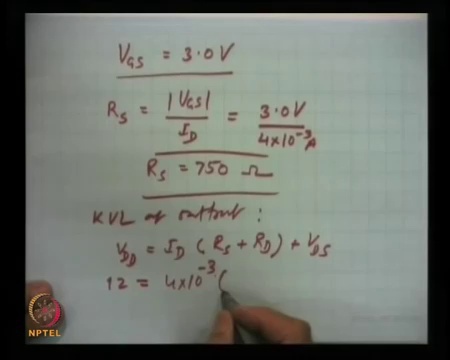 V_GS = 3.0 V
R_S = |V_GS| / I_D = 3.0 V / 4×10⁻³ A
R_S = 750 Ω
KVL at output :
V_DD = I_D ( R_S + R_D ) + V_DS
12 = 4×10⁻³ (
NPTEL